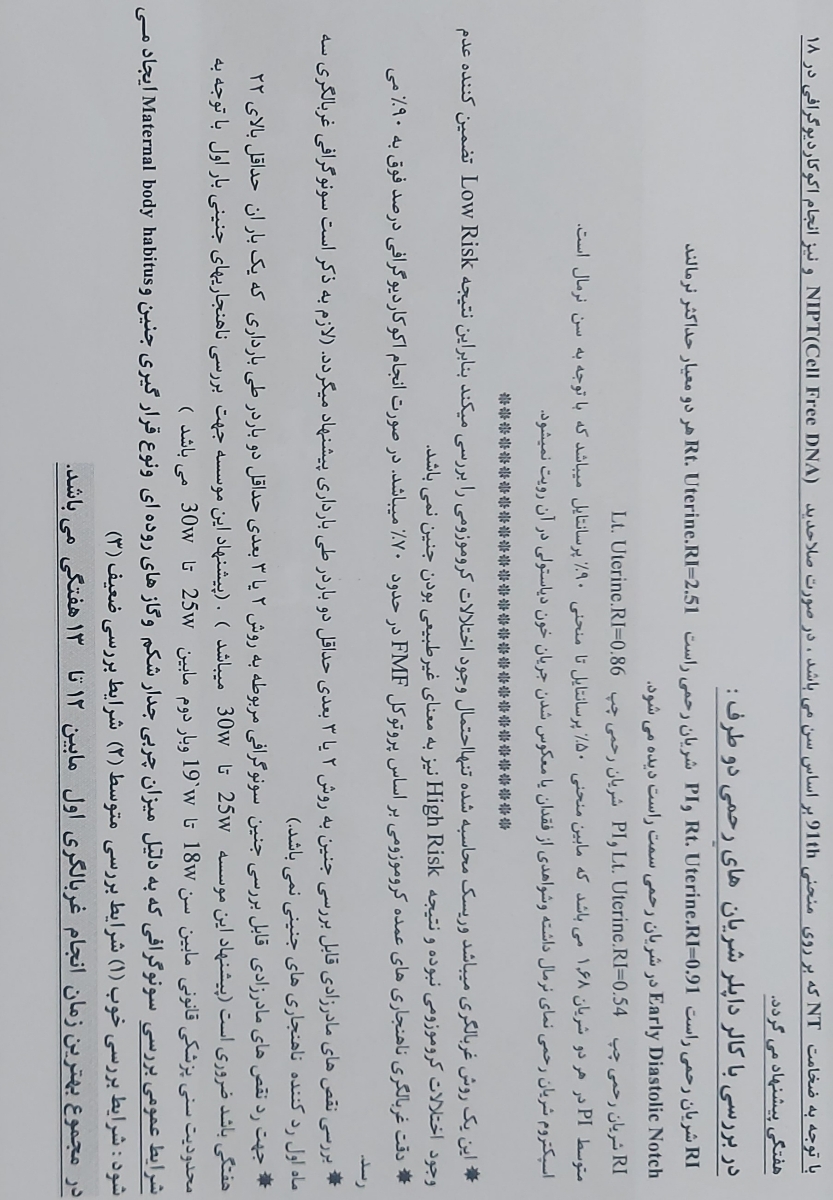 با توجه به ضخامت NT که بر روی منحنی 91th بر اساس سن می باشد ، در صورت صلاحدید NIPT(Cell Free DNA) و نیز انجام اکوکاردیوگرافی در ۱۸
هفتگی پیشنهاد می گردد.
در بررسی با کالر داپلر شریان های رحمی دو طرف :
RI شریان رحمی راست Rt. Uterine.RI=0.91 و PI شریان رحمی راست Rt. Uterine.RI=2.51 هر دو معیار حداکثر نرمالند
Early Diastolic Notch در شریان رحمی سمت راست دیده می شود.
RI شریان رحمی چپ Lt. Uterine.RI=0.54 و PI شریان رحمی چپ Lt. Uterine.RI=0.86
متوسط PI در هر دو شریان ۱.۶۸ می باشد که مابین منحنی ۵۰٪ پرسانتایل تا منحنی ۹۰٪ پرسانتایل میباشد که با توجه به سن نرمال است.
اسپکتروم شریان رحمی نمای نرمال داشته وشواهدی از فقدان یا معکوس شدن جریان خون دیاستولی در آن رویت نمیشود.
******************************
* این یک روش غربالگری میباشد وریسک محاسبه شده تنهااحتمال وجود اختلالات کروموزومی را بررسی میکند بنابراین نتیجه Low Risk تضمین کننده عدم
وجود اختلالات کروموزومی نبوده و نتیجه High Risk نیز به معنای غیرطبیعی بودن جنین نمی باشد.
* دقت غربالگری ناهنجاری های عمده کروموزومی بر اساس پروتوکل FMF در حدود ۷۰٪ میباشد. در صورت انجام اکوکاردیوگرافی درصد فوق به ۹۰٪ می
رسد.
* بررسی نقص های مادرزادی قابل بررسی جنین به روش ۲ یا ۳ بعدی حداقل دو باردر طی بارداری پیشنهاد میگردد. (لازم به ذکر است سونوگرافی غربالگری سه
ماه اول رد کننده ناهنجاری های جنینی نمی باشد.)
* جهت رد نقص های مادرزادی قابل بررسی جنین سونوگرافی مربوطه به روش ۲ یا ۳ بعدی حداقل دو باردر طی بارداری که یک بار ان حداقل بالای ۲۲
هفتگی باشد ضروری است (پیشنهاد این موسسه 25w تا 30w میباشد ) . (پیشنهاد این موسسه جهت بررسی ناهنجاریهای جنینی بار اول با توجه به
محدودیت سنی پزشکی قانونی مابین سن 18w تا 19`w وبار دوم مابین 25w تا 30w می باشد )
شرایط عمومی بررسی سونوگرافی که به دلیل میزان چربی جدار شکم وگاز های روده ای ونوع قرار گیری جنین و Maternal body habitus ایجاد مـی
شود : شرایط بررسی خوب (۱) شرایط بررسی متوسط (۲) شرایط بررسی ضعیف (۳)
در مجموع بهترین زمان انجام غربالگری اول مابین ۱۲ تا ۱۳ هفتگی می باشد.